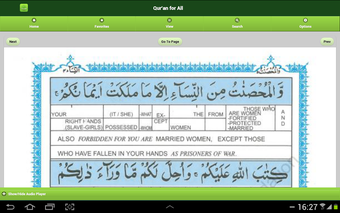 Qur'an for All
Home Favorites View Search Options
Next Go To Page Prev
وَّالْمُحْصَنٰتُ مِنَ النِّسَآءِ اِلَّا مَا مَلَكَتْ اَيْمَانُكُمْ
YOUR (IT / SHE) WHAT EX- THE FROM THOSE WHO A
RIGHT HANDS CEPT ARE WOMEN N
(SLAVE-GIRLS) POSSESSED WOMEN -FORTIFIED D
-PROTECTED
-MARRIED
ALSO FORBIDDEN FOR YOU ARE MARRIED WOMEN, EXCEPT THOSE
WHO HAVE FALLEN IN YOUR HANDS AS PRISONERS OF WAR.
كِتٰبَ اللّٰهِ عَلَيْكُمْ وَاُحِلَّ لَكُمْ مَّا وَرَآءَ ذٰلِكُمْ
Show/Hide Audio Player
16:27